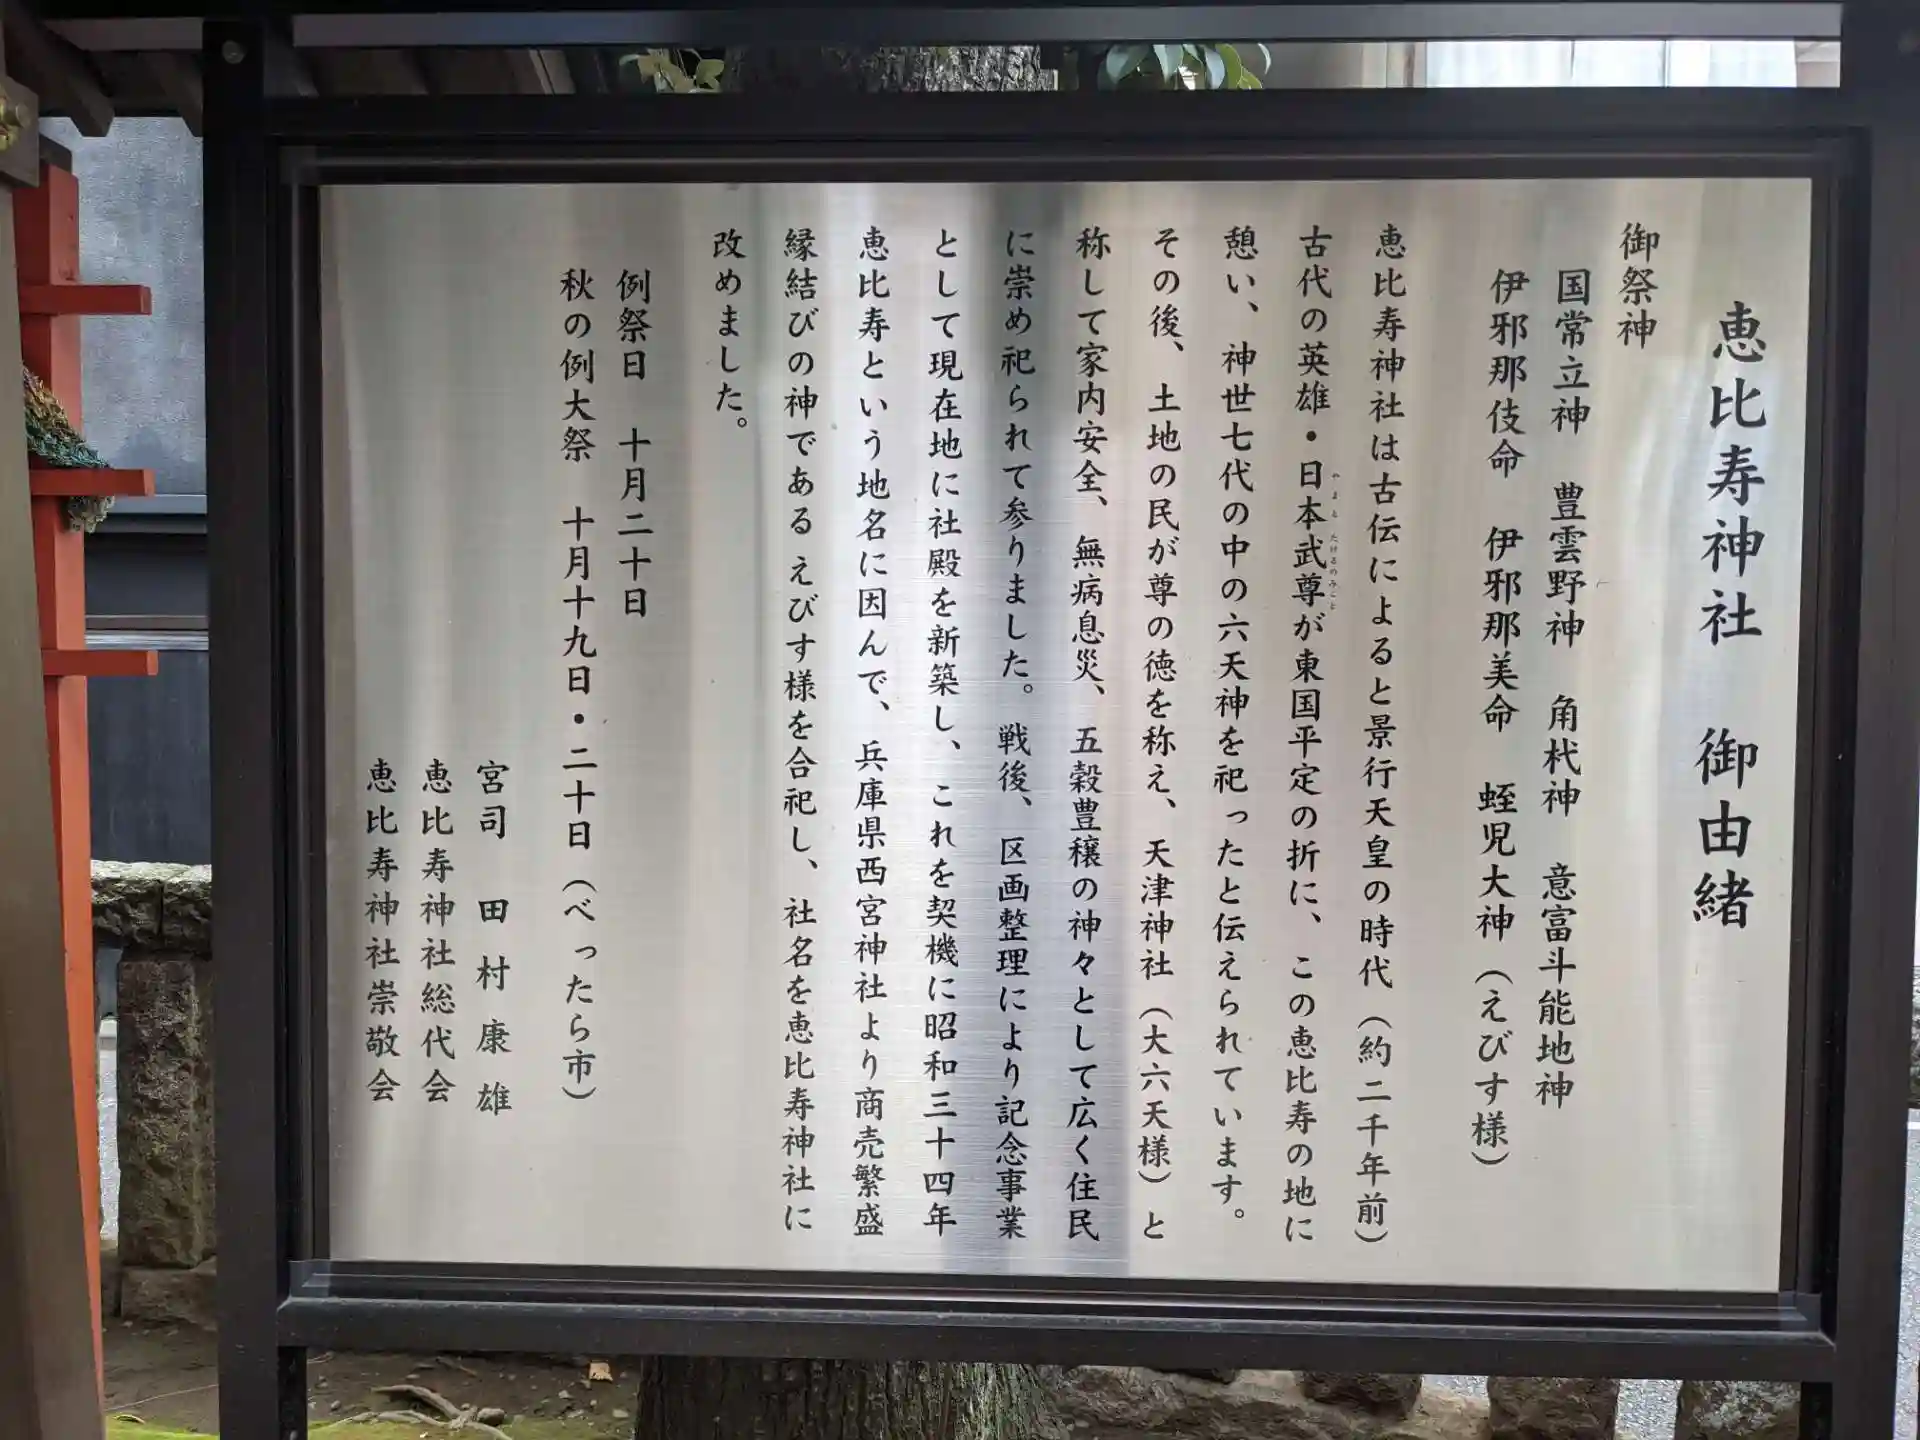 恵比寿神社　御由緒
御祭神
国常立神　豊雲野神　角杙神　意富斗能地神
伊邪那伎命　伊邪那美命　蛭児大神（えびす様）
恵比寿神社は古伝によると景行天皇の時代（約二千年前）
古代の英雄・日本武尊が東国平定の折に、この恵比寿の地に
やまと たけるのみこと
憩い、神世七代の中の六天神を祀ったと伝えられています。
その後、土地の民が尊の徳を称え、天津神社（大六天様）と
称して家内安全、無病息災、五穀豊穣の神々として広く住民
に崇め祀られて参りました。戦後、区画整理により記念事業
として現在地に社殿を新築し、これを契機に昭和三十四年
恵比寿という地名に因んで、兵庫県西宮神社より商売繁盛
縁結びの神であるえびす様を合祀し、社名を恵比寿神社に
改めました。
例祭日　十月二十日
秋の例大祭　十月十九日・二十日（べったら市）
宮司　田村康雄
恵比寿神社総代会
恵比寿神社崇敬会